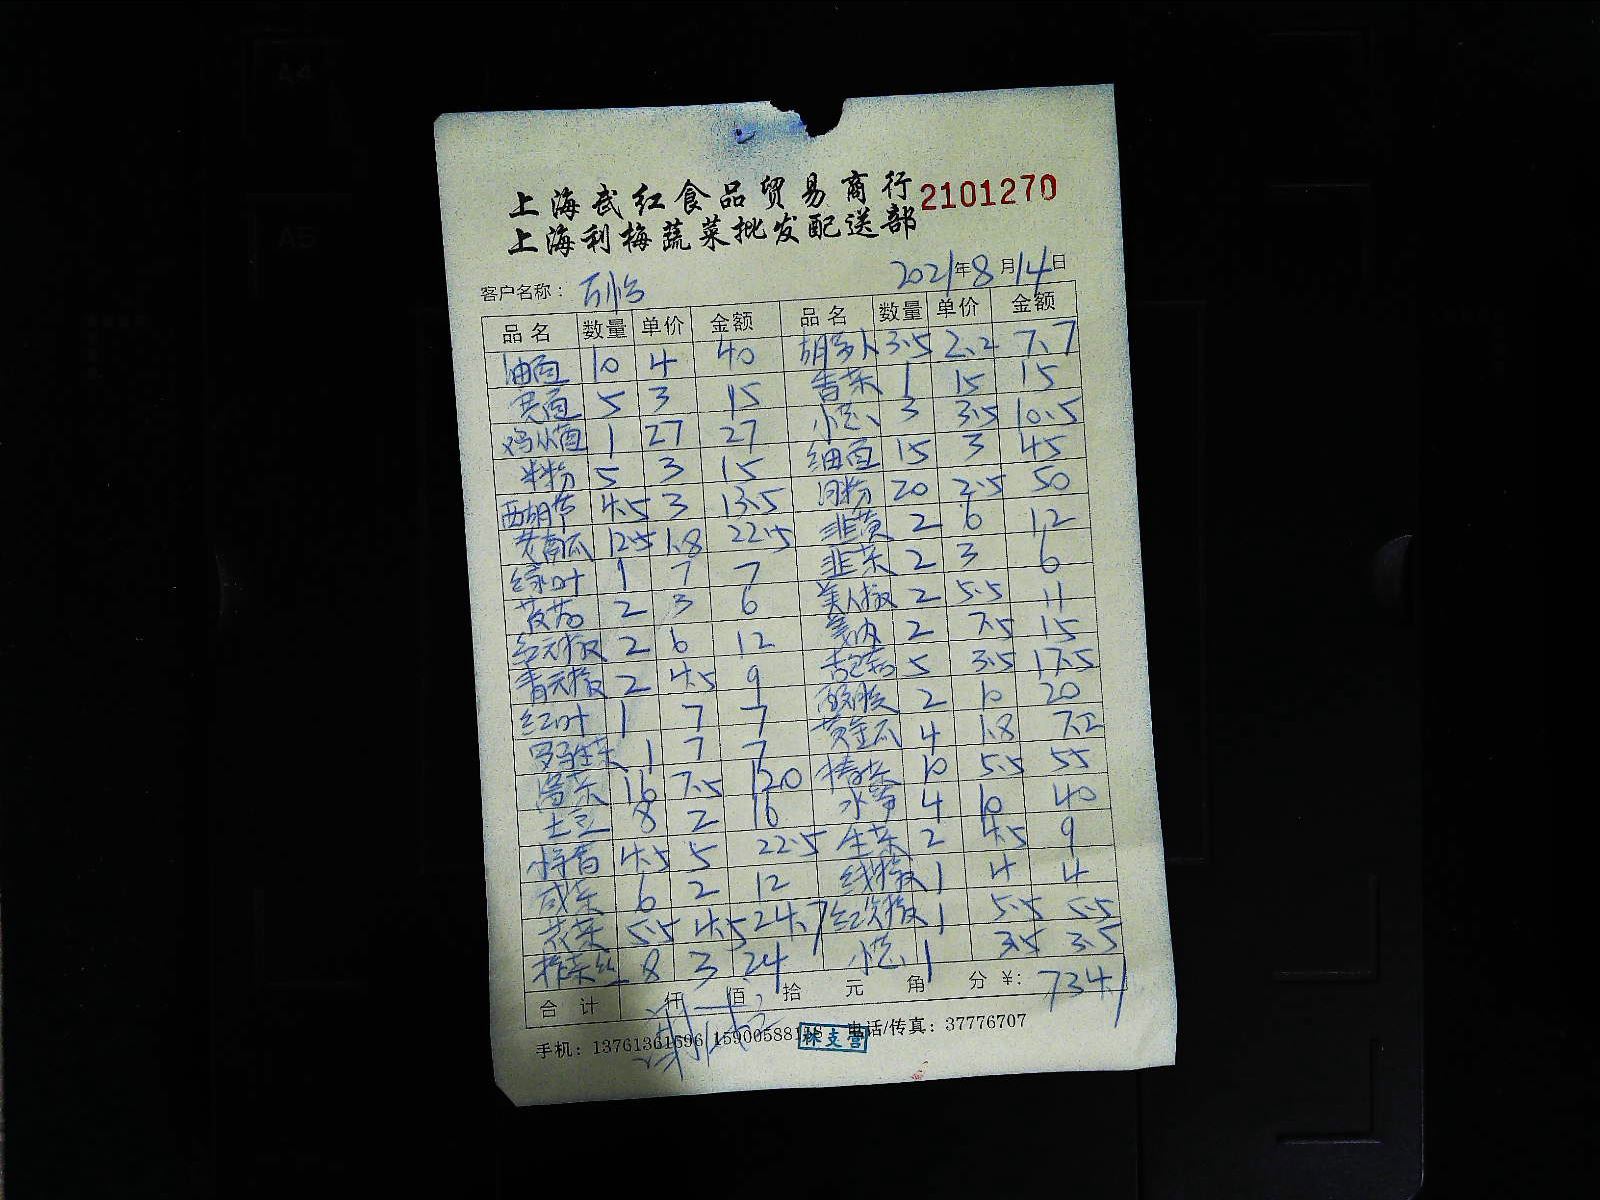 上海武红食品贸易商行 2101270
上海利梅蔬菜批发配送部
客户名称： 2021年8月14日
品名 数量 单价 金额 品名 数量 单价 金额
油面 10 4 40 胡萝卜 3.5 2.2 7.7
宽面 5 3 15 香菜 1 15 15
鸡蛋面 1 27 27 小葱 3 3.5 10.5
米粉 5 3 15 细面 15 3 45
西葫芦 4.5 3 13.5 河粉 20 2.5 50
黄南瓜 12.5 1.8 22.5 韭黄 2 6 12
绿叶 1 7 7 韭菜 2 3 6
2 3 6 美人椒 2 5.5 11
红元椒 2 6 12 2 7.5 15
青元椒 2 4.5 9 5 3.5 17.5
红叶 1 7 7 2 10 20
罗马生菜 1 7 7 黄金瓜 4 1.8 7.2
16 7.5 120 10 5.5 55
土豆 8 2 16 水笋 4 10 40
4.5 5 22.5 生菜 2 4.5 9
咸菜 6 2 12 线椒 1 4 4
5.5 4.5 24.7 1 5.5 5.5
榨菜丝 8 3 24 小葱 1 3.5 3.5
合计 仟 佰 拾 元 角 分 ¥: 734.1
手机：13761361696 电话/传真：37776707